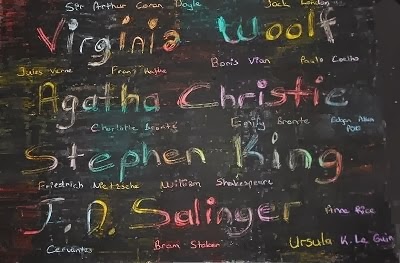 Sir Arthur Conan Doyle Jack London
Virginia Woolf
Boris Vian Paulo Coelho
Jules Verne Franz Kafka
Agatha Christie
Charlotte Bronte Emily Bronte Edgar Allan
Poe
Stephen King
Friedrich Nietzsche William Shakespeare
J. D. Salinger Anne Rice
Cervantes Bram Stoker Ursula K. Le Guin